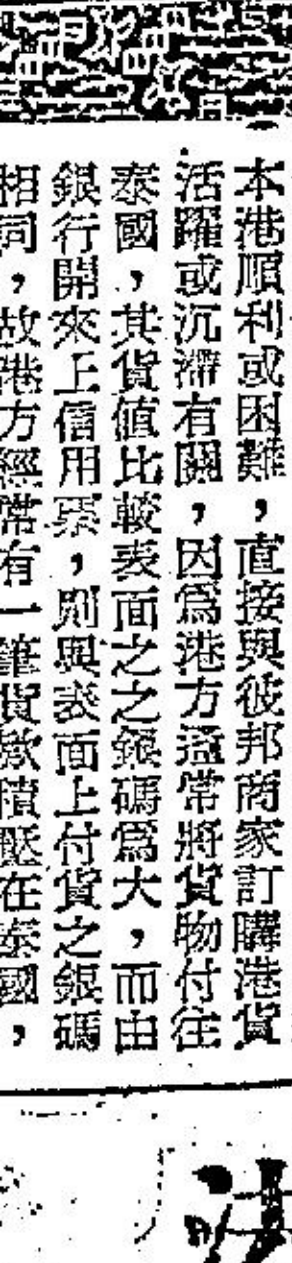 本港順利或困難，直接與彼邦商家訂購港貨
活躍或沉滯有關，因爲港方通常將貨物付往
泰國，其貨值比較表面之銀碼爲大，而由
銀行開來上信用票，則與表面上付貨之銀碼
相同，故港方經常有一筆貨欵積壓在泰國，